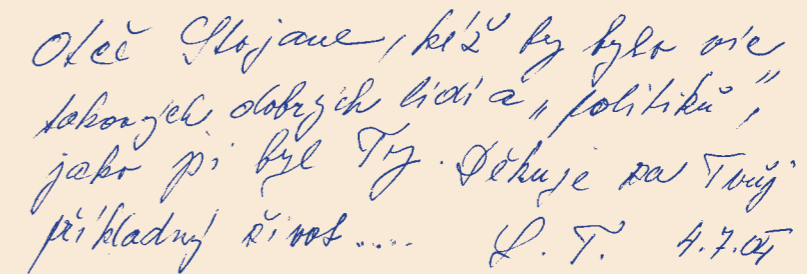 Otče Stojane, kéž by bylo víc
takových dobrých lidí a „politiků",
jako jsi byl Ty. Děkuje za Tvůj
příkladný život....  L. T.  4.7.04